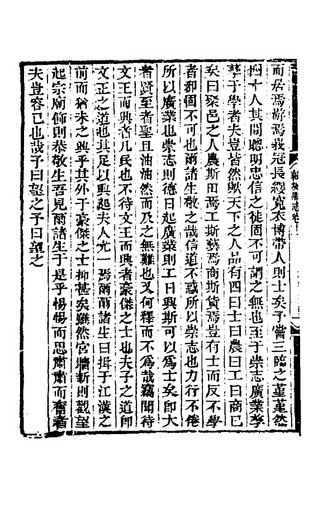 而居焉游焉峩冠長纓寛衣博帶人則士矣予嘗三臨之蓳蓳然
四十人其間聰明忠信之徒固不可謂之無也至于崇志廣業孳
孳于學者夫豈皆然歟天下之人品有四曰士曰農曰工曰商已
矣曰梁邑之人農斯田焉工斯藝焉商斯貨焉豈有士而反不學
者邪固不可也爾諸生敬之哉信道不惑所以崇志也力行不倦
所以廣業也崇志則德日起廣業則工日興斯可以爲士矣卽大
者賢至者聖且油油然而及之無難也又何釋而不爲哉竊聞待
文王而興者凡民也不待文王而興者豪傑之士也夫子之道卽
文王之道也其足以興起夫人尤一焉爾爾諸生曰揖子江漢之
前而猶未之興乎其外于豪傑之士抑甚矣雖然宮墻新則觀望
起宗廟飾則恭敬生吾見爾諸生于是乎惕惕而思肅肅而奮者
夫豈容已也哉予曰望之予曰望之